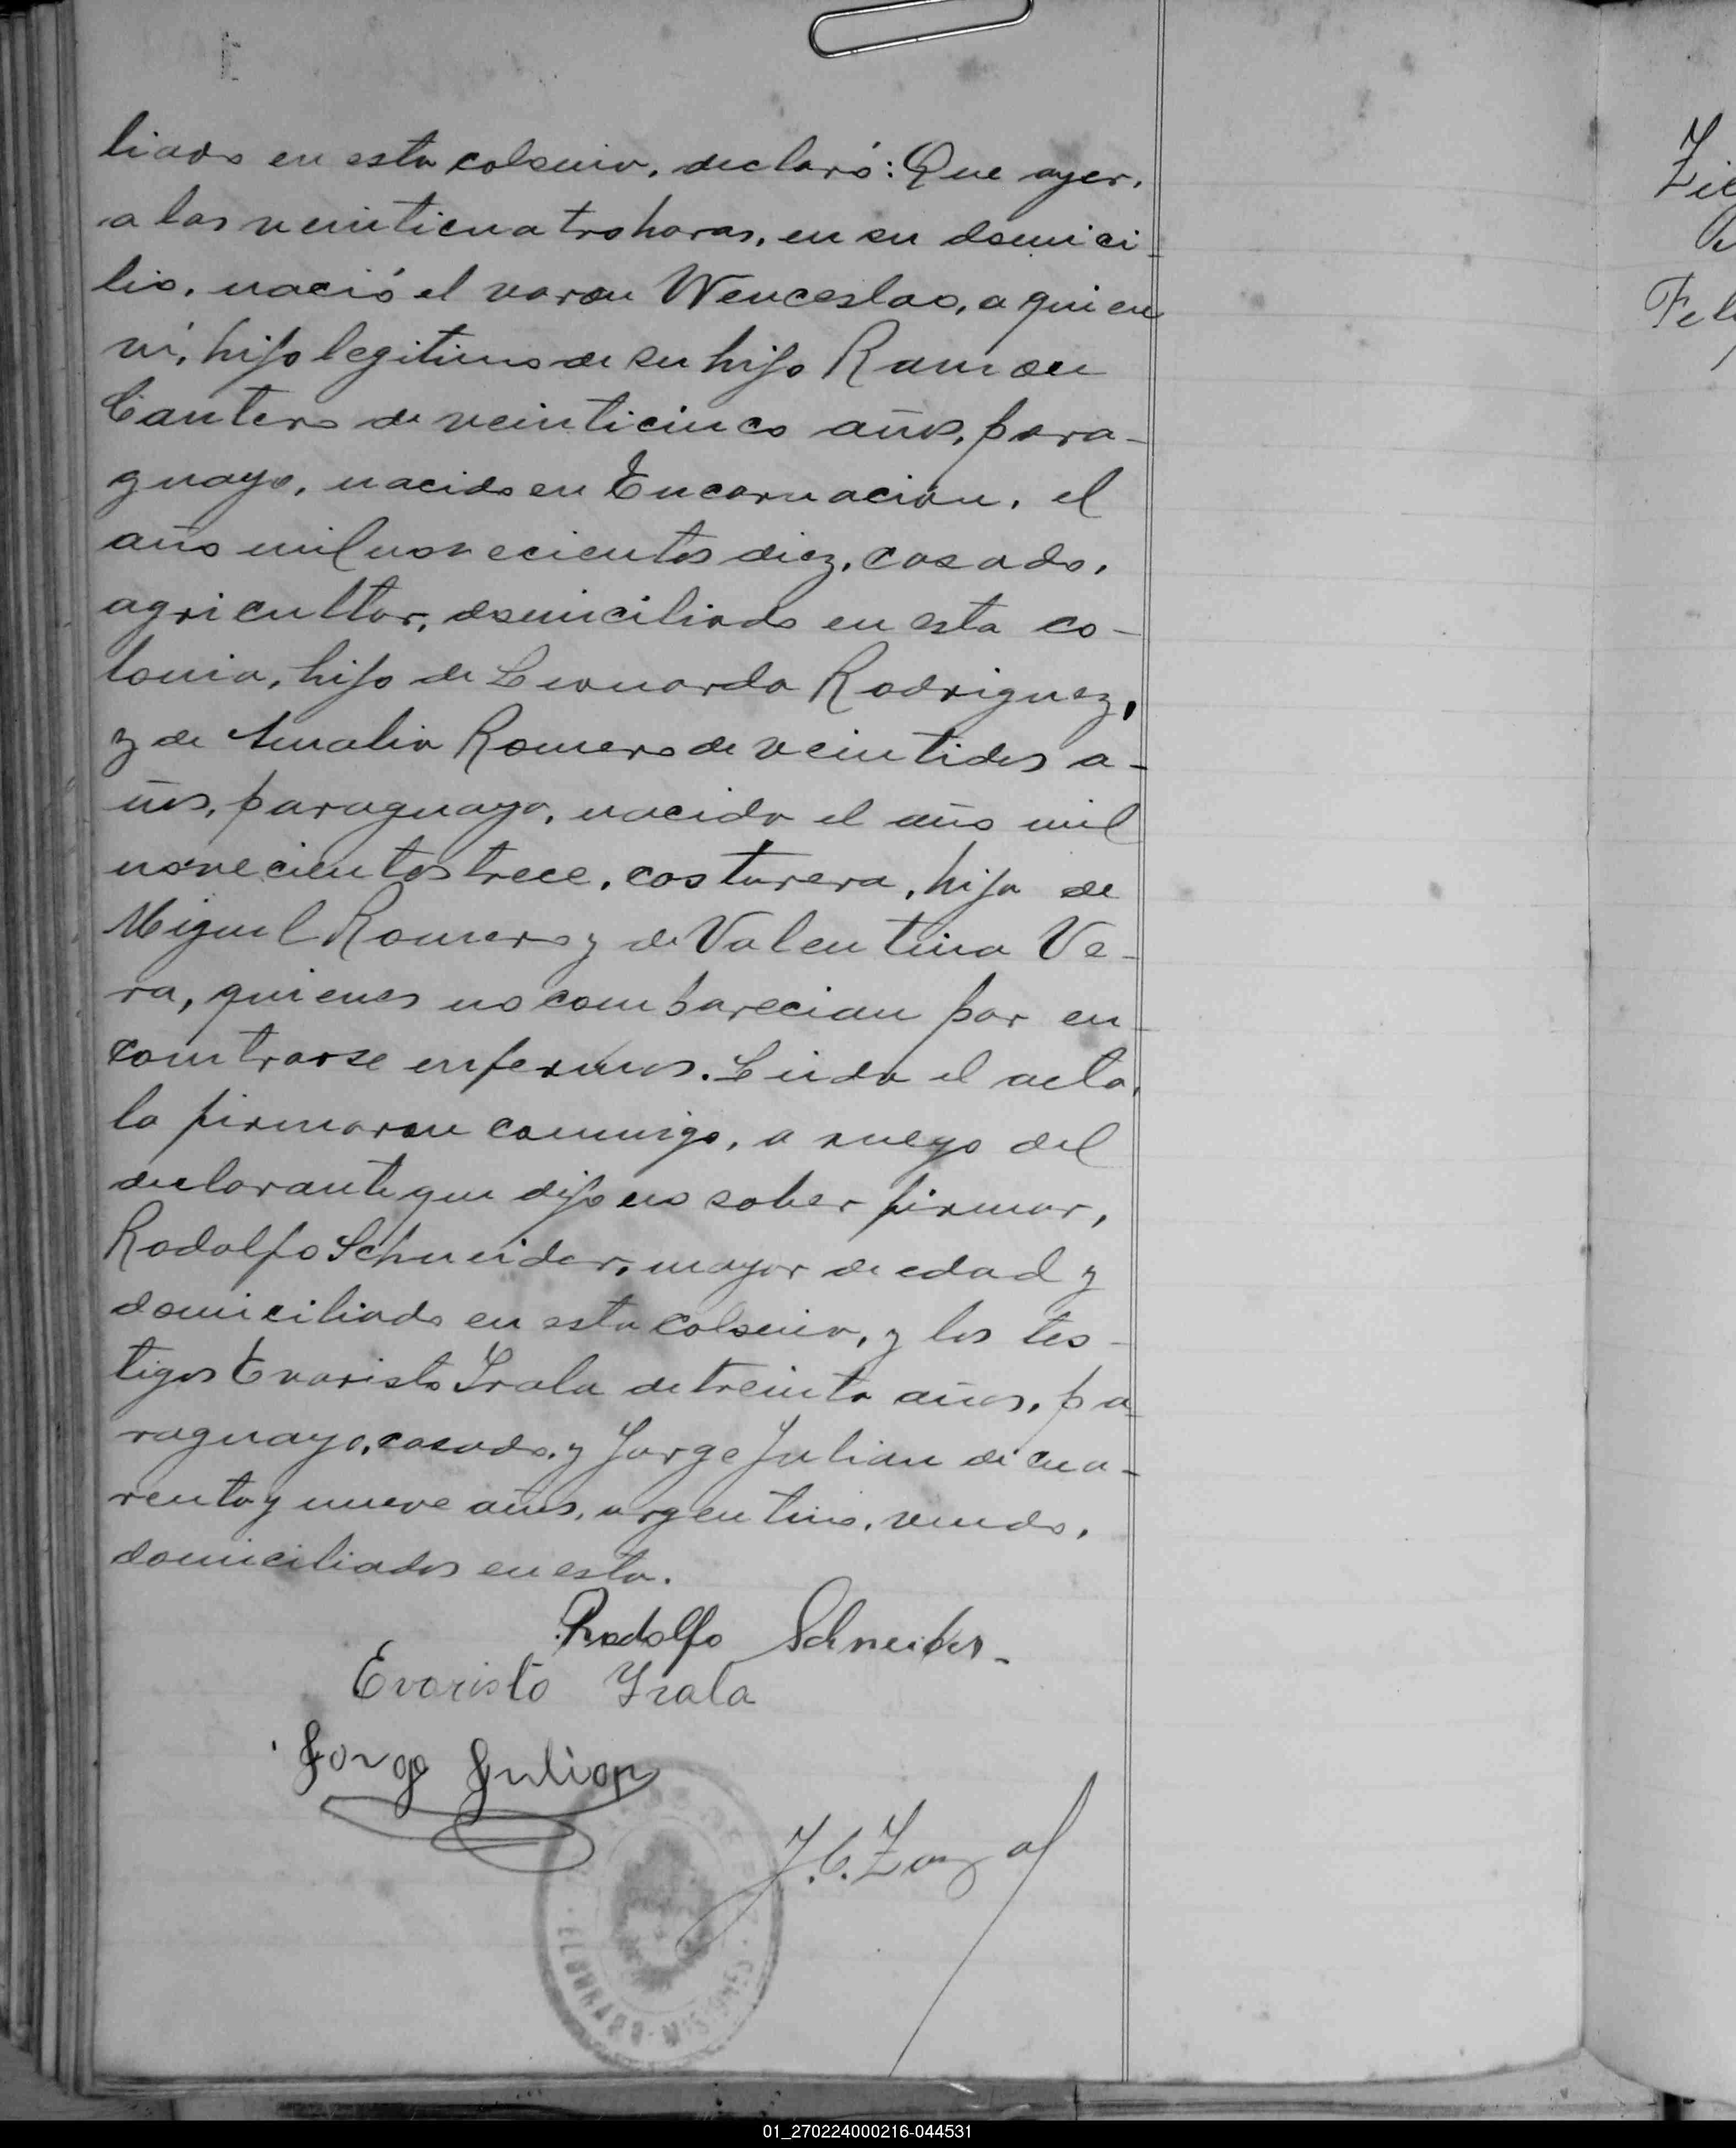 liado en esta colonia, declaró: Que ayer,
a las veinticuatro horas, en su domici
lio, nació el varon Wenceslao, a quien
vi, hijo legitimo de su hijo Ramon
Cantero de veinticinco años, para-
guayo, nacido en Encarnacion, el
año mil novecientos diez, casado,
agricultor, domiciliado en esta co-
lonia, hijo de Leonarda Rodriguez,
y de Amalia Romero de veintidos a-
ños, paraguaya, nacida el año mil
novecientos trece, costurera, hija de
Miguel Romero y de Valentina Ve-
ra, quienes no comparecian por en-
contrarse enfermos. Leida el acta,
la firmaron conmigo, a ruego del
declarante que dijo no saber firmar,
Rodolfo Schneider, mayor de edad y
domiciliado en esta colonia, y los tes-
tigos Evaristo Irala de treinta años, pa-
raguayo, casado, y Jorge Julian de cua-
renta y nueve años, argentino, viudo,
domiciliados en esta.
Rodolfo Schneider
Evaristo Irala
Jorge Julian
ELDORADO - MISIONES
01_270224000216-044531